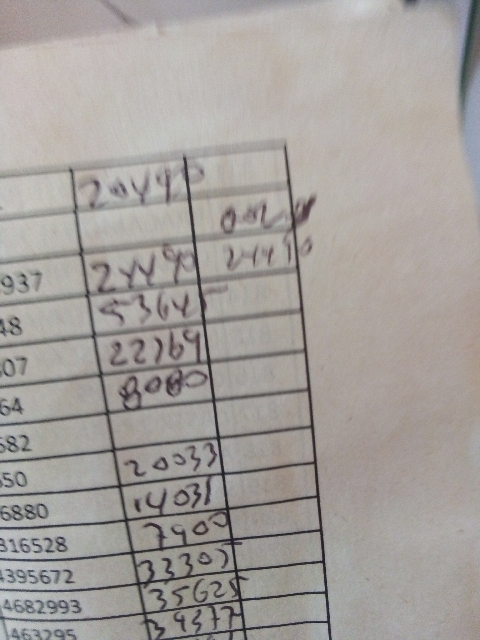 20490
937 24490 24490
48 53645
607 22769
64 8080
682
650 20033
6880 14031
316528 7900
4395672 33305
4682993 35625
463295 39377